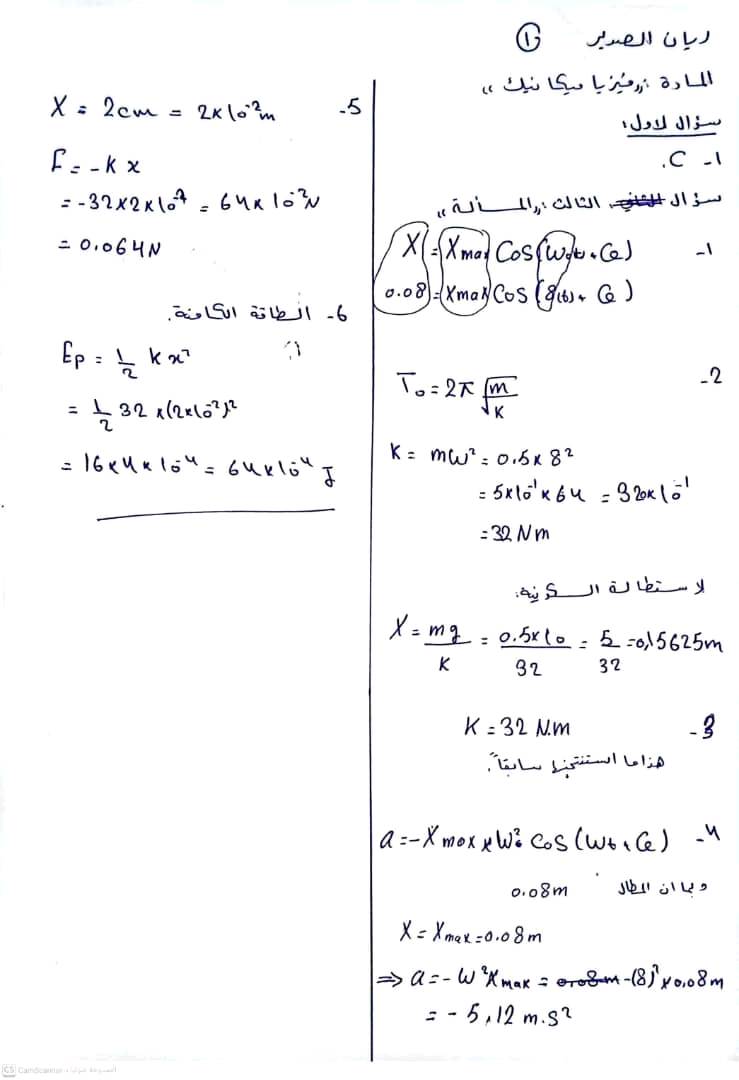 ريان الصدير ①
المادة: "فيزيا ميكانيك"
سؤال لاول:
1- C.
سؤال الثالث: "المسألة"
1- X = Xmax Cos(ω₀t + φ)
0.08 = Xmax Cos(8(t) + φ)
2- T₀ = 2π √(m/K)
K = mω² = 0.5 x 8²
= 5x10⁻¹ x 64 = 320x10⁻¹
= 32 Nm
لاستطالة السكونية:
X = mg/K = 0.5x10/32 = 5/32 = 0,15625m
3- K = 32 N.m
هذا ما استنتجنا سابقاً.
4- a = -Xmax x ω₀² Cos(ωt + φ)
وبما ان المطال 0.08m
X = Xmax = 0.08m
⇒ a = -ω² Xmax = -(8)² x 0,08m
= - 5,12 m.s²
5- X = 2cm = 2x10⁻²m
F = -K x
= -32x2x10⁻² = 64x10⁻²N
= 0.064N
6- الطاقة الكامنة.
Ep = 1/2 k x²
= 1/2 32 x(2x10⁻²)²
= 16x4x10⁻⁴ = 64x10⁻⁴ J
CS CamScanner